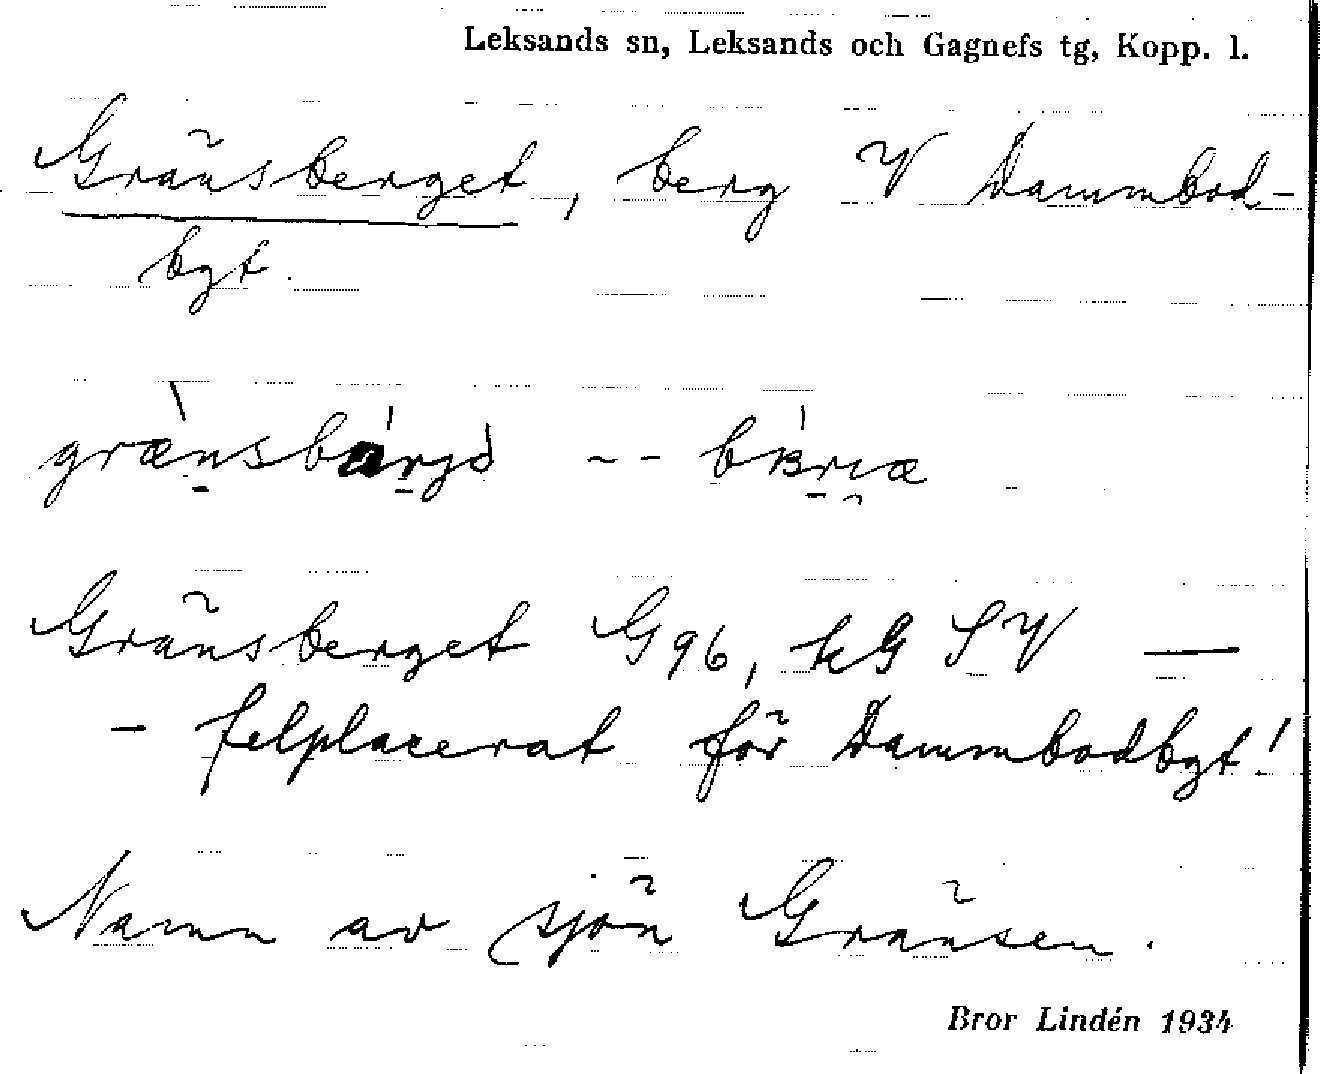 Leksands sn, Leksands och Gagnefs tg, Kopp. l.
Gränsberget, berg V Dammbod-
bgt.
Gränsberget G96, kG SV —
– felplacerat för Dammbodbgt!
Namn av sjön Gränsen.
Bror Lindén 1934